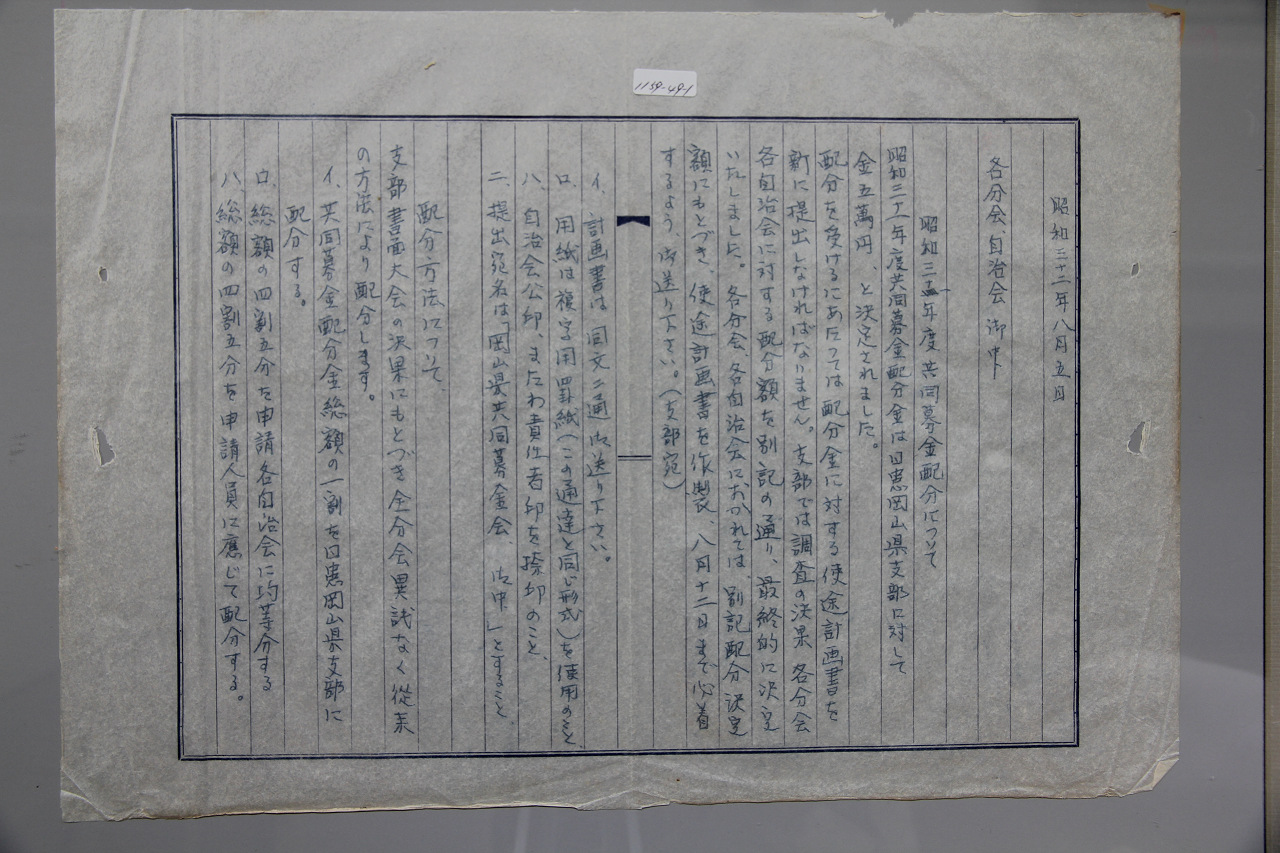 1159-49-1
昭和三十二年八月五日
各分会、自治会 御中
昭和三十二年度共同募金配分について
昭和三十二年度共同募金配分金は日患岡山県支部に対して
金五萬円、と決定されました。
配分を受けるにあたつては配分金に対する使途計画書を
新に提出しなければなりません。支部では調査の決果 各分会
各自治会に対する配分額を別記の通り、最終的に決定
いたしました。各分会、各自治会におかれては、別記配分決定
額にもとづき、使途計画書を作製、八月十二日まで必着
するよう、御送り下さい。(支部宛)
イ、計画書は同文二通御送り下さい。
ロ、用紙は複写用罫紙(この通達と同じ形式)を使用のこと、
ハ、自治会公印、またわ責任者印を捺印のこと、
二、提出宛名は「岡山県共同募金会、御中」とすること、
配分方法について
支部書面大会の決果にもとづき全分会異議なく從来
の方法により配分します。
イ、共同募金配分金総額の一割を日患岡山県支部に
配分する。
ロ、総額の四割五分を申請各自治会に均等分する
ハ、総額の四割五分を申請人員に應じて配分する。